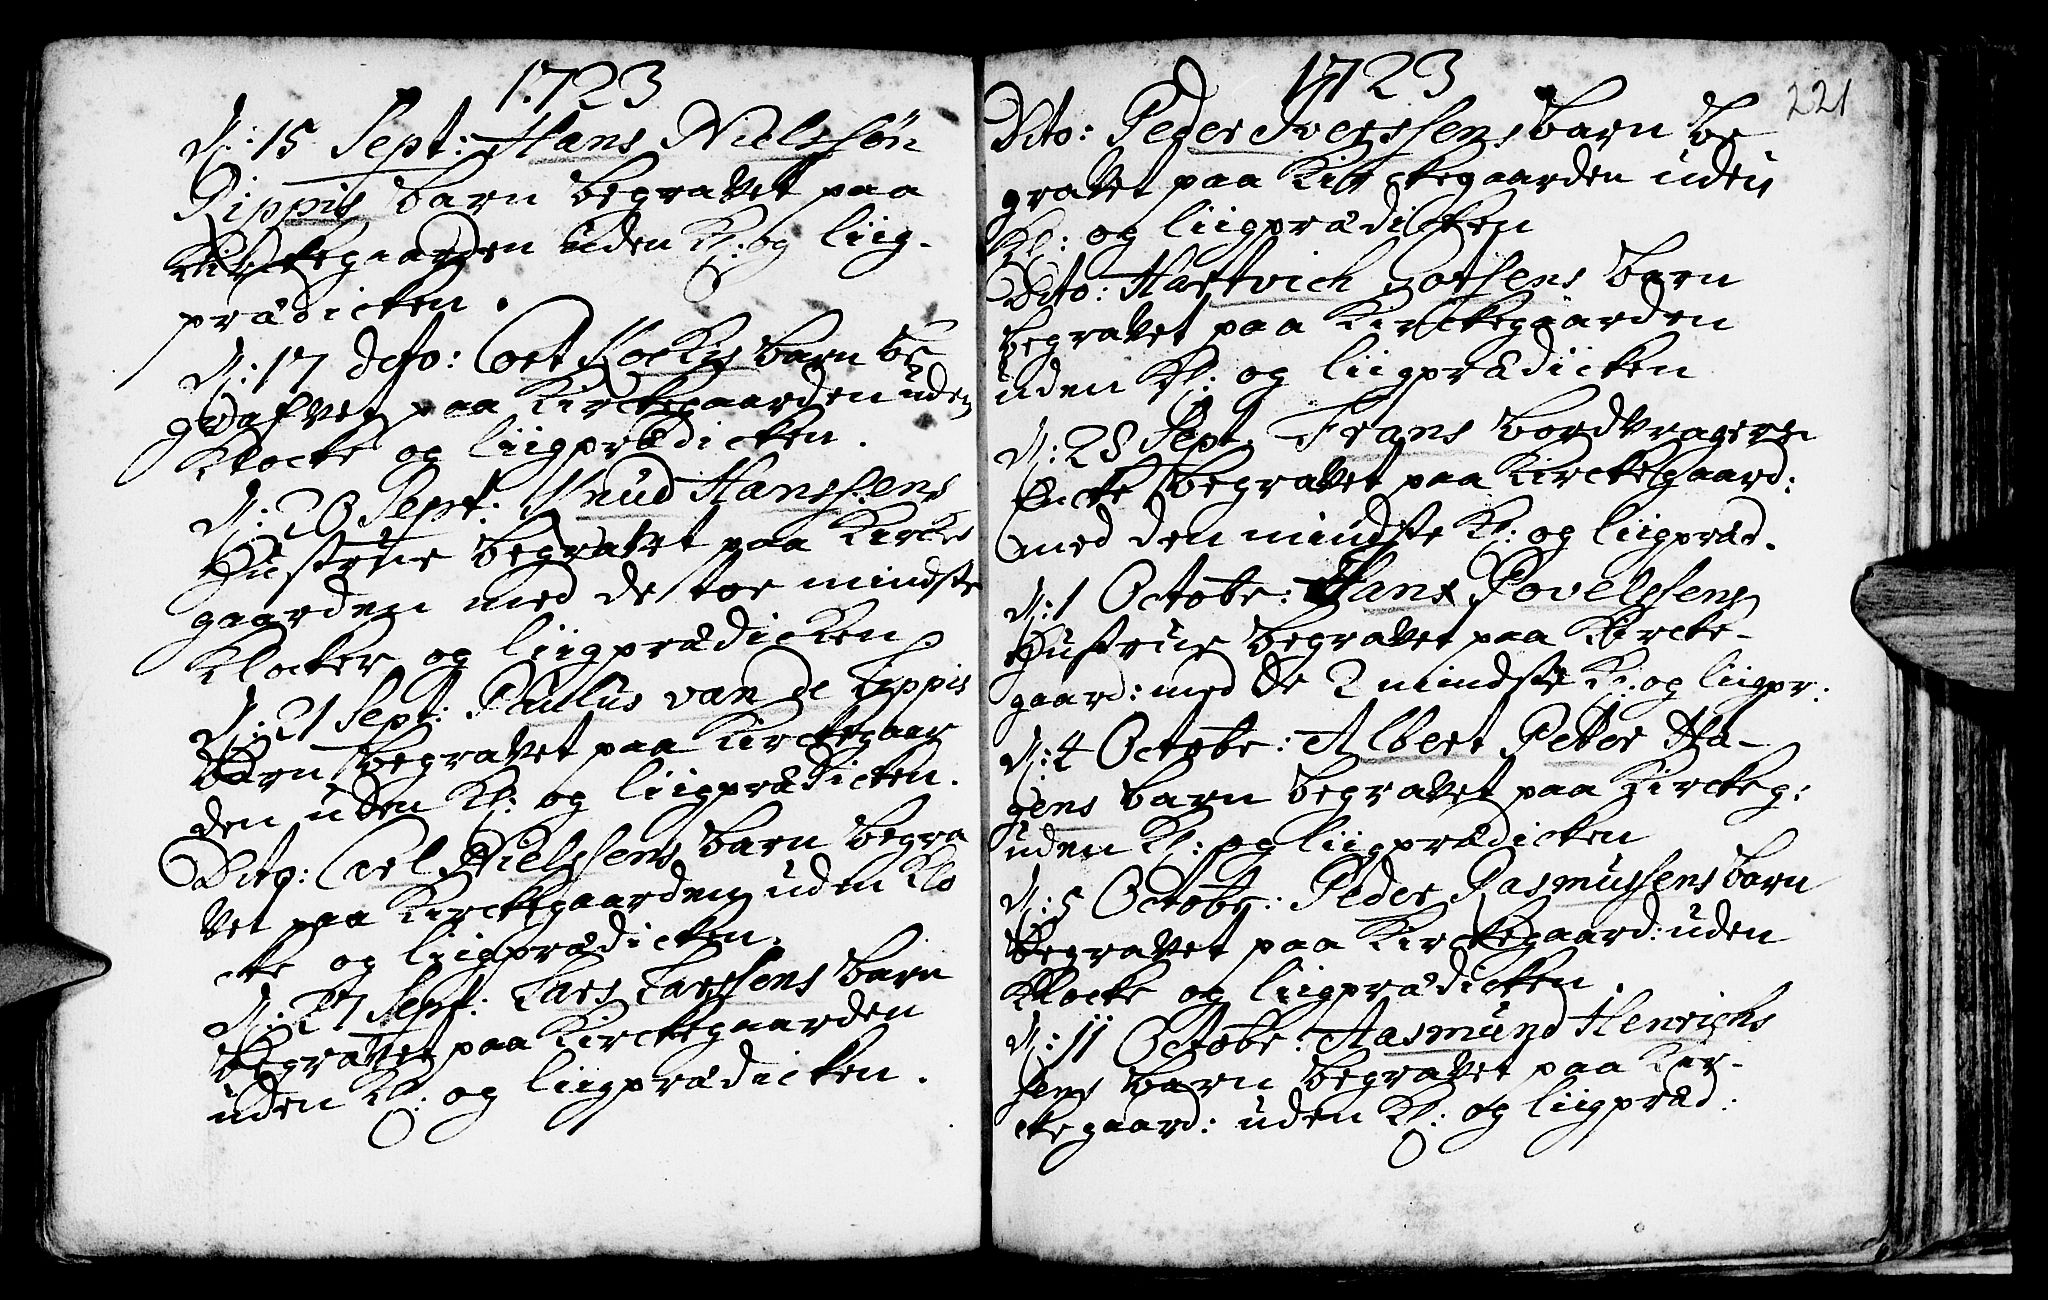 1723
d: 15 Sept: Hans Nielssøn
Rippis barn begravet paa
Kirckegaarden uden Kl: og liig-
prædicken.
d: 17 dito: Cort Kockis barn be
grafvet paa Kirckegaarden uden
Klocke og liigprædicken.
d: 20 Sept: Knud Hanssens
Hustrue begravet paa Kircke
gaarden med de toe mindste
Klocker og liigprædicken
d: 21 Sept: Paulus van de Lippis
barn begravet paa Kirckegaar
den uden Kl: og liigprædicken.
Dito: Carl Nielssens barn begra
vet paa Kirckegaarden uden Klo
cke og liigprædicken.
d: 27 Sept: Lars Larssens barn
begravet paa Kirckegaarden
uden Kl: og liigprædicken.
1723
221
Dito: Peder Iverssens barn be
gravet paa Kirckegaarden uden
Kl: og liigprædicken
Dito: Hartvich barn
begravet paa Kirckegaarden
uden Kl: og liigprædicken
d: 28 Sept. Frans bordvragers
Encke begravet paa Kirckegaard:
med den mindste Kl: og liigpræd.
d: 1 Octobr: Hans Povelssens
Hustrue begravet paa Kircke-
gaard: med de 2 mindste Kl: og liigpr:
d: 4 Octobr: Albert Peter Ha-
gens barn begravet paa Kirckeg:
uden Kl: og liigprædicken
d: 5 Octobr: Peder Rasmussens barn
begravet paa Kirckegaard: uden
Klocke og liigprædicken.
d: 11 Octobr: Aasmund Henrichs
sens barn begravet paa Kir-
ckegaard: uden Kl: og liigpræd: